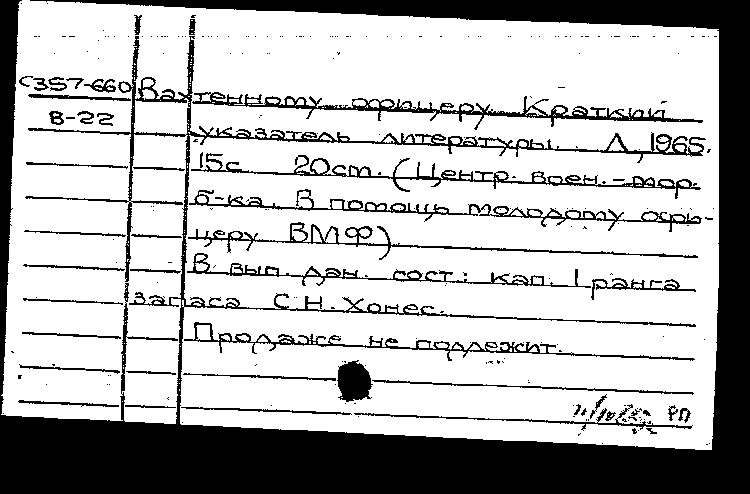 С357-660 Вахтенному офицеру. Краткий
В-22 указатель литературы. Л., 1965.
15с 20cm. (Центр. воен.-мор.
б-ка. В помощь молодому офи-
церу ВМФ)
В вып. дан. сост.: кап. 1 ранга
запаса С.Н. Хонес.
Продаже не подлежит.
РП